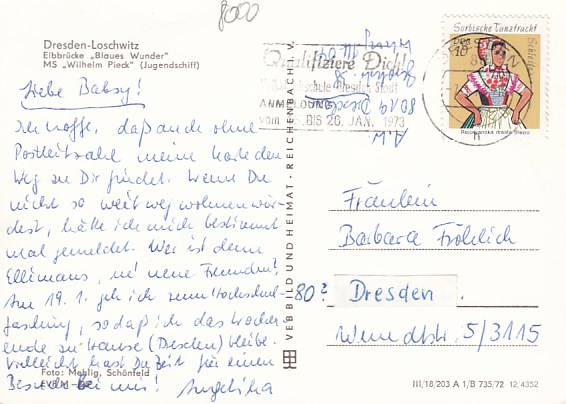 8000
Dresden-Loschwitz
Elbbrücke „Blaues Wunder"
MS „Wilhelm Pieck" (Jugendschiff)
Liebe Babsy!
Ich hoffe, daß auch ohne
Postleitzahl meine Karte den
Weg zu Dir findet. Wenn Du
nicht so weit weg wohnen wür-
dest, hätte ich mich bestimmt
mal gemeldet. Wer ist denn
Ellimaus, ne neue Freundin?
Am 19.1. geh ich zum Hochschul-
fasching, so daß ich das Wochen-
ende zu Hause (Dresden) bleibe.
Vielleicht hast Du Zeit für einen
Besuch bei mir! Angelika
Foto: Mehlig, Schönfeld
EVP M
VEB BILD UND HEIMAT · REICHENBACH i. V.
Qualifiziere Dich!
schule Dresden Stadt
ANMELDUNG
vom BIS 26. JAN. 1973
A.W.
8019 Dresden
Sorbische Tanztracht
DDR
10
Schleife
Fräulein
Barbara Fröhlich
80? Dresden
Wundtstr. 5/3115
III/18/203 A 1/B 735/72 12/4352